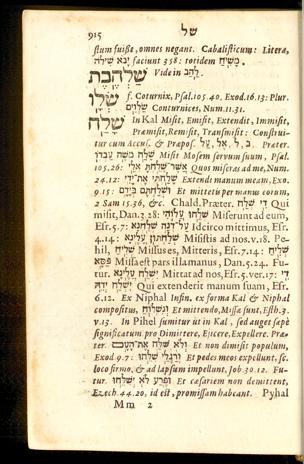 915 של
stum fuisse, omnes negant. Cabalisticum: Litera,
יבא שילה faciunt 358: totidem משיח.
שלהבת Vide in להב
שלו f. Coturnix, Psal. 105.40, Exod. 16.13: Plur.
שלוים Coturnices, Num. 11.31.
שלח In Kal Misit, Emisit, Extendit, Immisit,
Præmisit, Remisit, Transmisit: Construi-
tur cum Accus. & Præpos. ב, ל, אל, על Præter.
שלח משה עבדו Misit Mosem servum suum, Psal.
105.26: אשר שלחת אלי Quos misisti ad me, Num.
24.12: שלחתי את ידי Extendi manum meam, Exo.
9.15: ושלחתם בידם Et mittetis per manus eorum,
2 Sam 15.36, &c. Chald. Præter. די שלח Qui
misit, Dan. 3.28: שלחו עלוהי Miserunt ad eum,
Esr. 5.7: על דנה שלחנא Idcirco mittimus, Esr.
4.14: שלחתון עלינא Misistis ad nos v. 18. Pe-
hil, שליח Missus es, Mitteris, Esr. 7.14: שליח
פסא Missa est pars illamanus, Dan. 5.24. Fu-
tur. ישלח עלינא Mittat ad nos, Esr. 5. ver. 17: די
ישלח ידה Qui extenderit manum suam, Esr.
6.12. Ex Niphal Infin. ex forma Kal & Niphal
compositus, ונשלוח Et mittendo, Missa sunt, Esth. 3.
v. 13. In Pihel sumitur ut in Kal, sed auget sæpè
significatum pro Dimittere, Ejicere, Expellere. Præ-
ter. ולא שלח את העם Et non dimisit populum,
Exod 9.7: רגלי שלחו Et pedes meos expellunt, sc.
loco firmo, & ad lapsum impellunt, Job 30.12. Fu-
tur. ופרע לא ישלחו Et cæsariem non demittent,
Ezech. 44.20, id est, promissam habcant. Pyhal
Mm 2